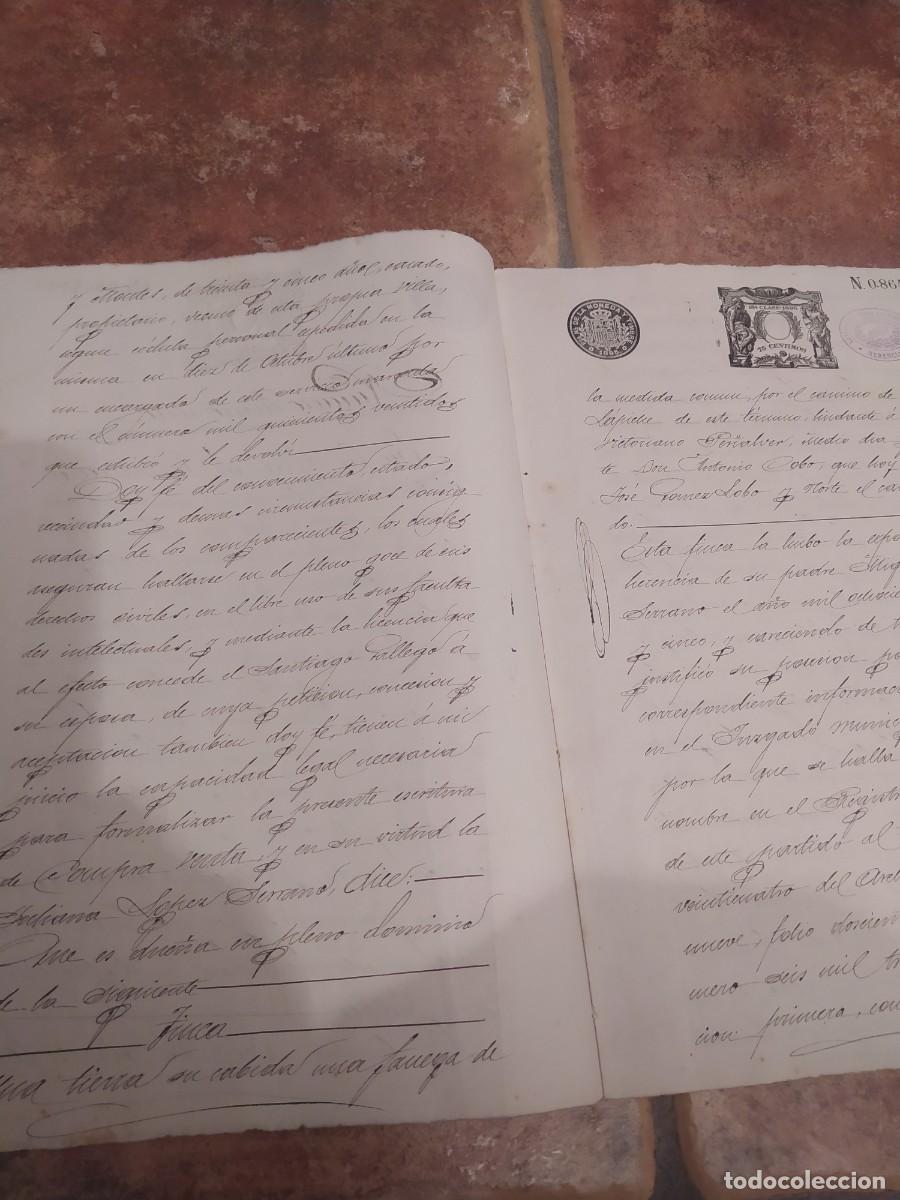 y Montes, de treinta y cinco años, casado,
propietario, vecino de esta propia villa,
segun cédula personal expedida en la
misma en diez de Octubre último por
un encargado de este servicio marcada
con el número mil quinientos veintidos
que exhibió y le devolví
Doy fé del conocimiento, estado,
vecindad y demas circunstancias consig
nadas de los comparecientes, los cuales
aseguran hallarse en el pleno goce de sus
derechos civiles, en el libre uso de sus faculta
des intelectuales, y mediante la licencia que
al efecto concede el Santiago Gallego á
su esposa, de cuya peticion, concesion y
aceptacion tambien doy fé, tienen á mi
juicio la capacidad legal necesaria
para formalizar la presente escritura
de compra venta, y en su virtud la
Juliana Lopez Serrano, dice:
Que es dueña en pleno dominio
de la siguiente
Finca
Una tierra su cabida una fanega de
N.0.86
DE LA MONEDA Y
1895
CLASE 1895
75 CENTIMOS
HERENCIA
la medida comun, por el camino de
Lapiche de este término, lindante á
Victoriano Peñalver, medio dia
te Don Antonio Cobo, que hoy
José Gomez Lobo y Norte el ca
do.
Esta finca la hubo la espo
herencia de su padre Mig
Serrano el año mil ochoci
y cinco, y careciendo de t
justificó su posesion p
correspondiente informac
en el Juzgado Munic
por la que se halla
nombre en el Registr
de este partido al
veinticuatro del
nueve, folio doscient
mero seis mil t
cion primera, con
todocoleccion